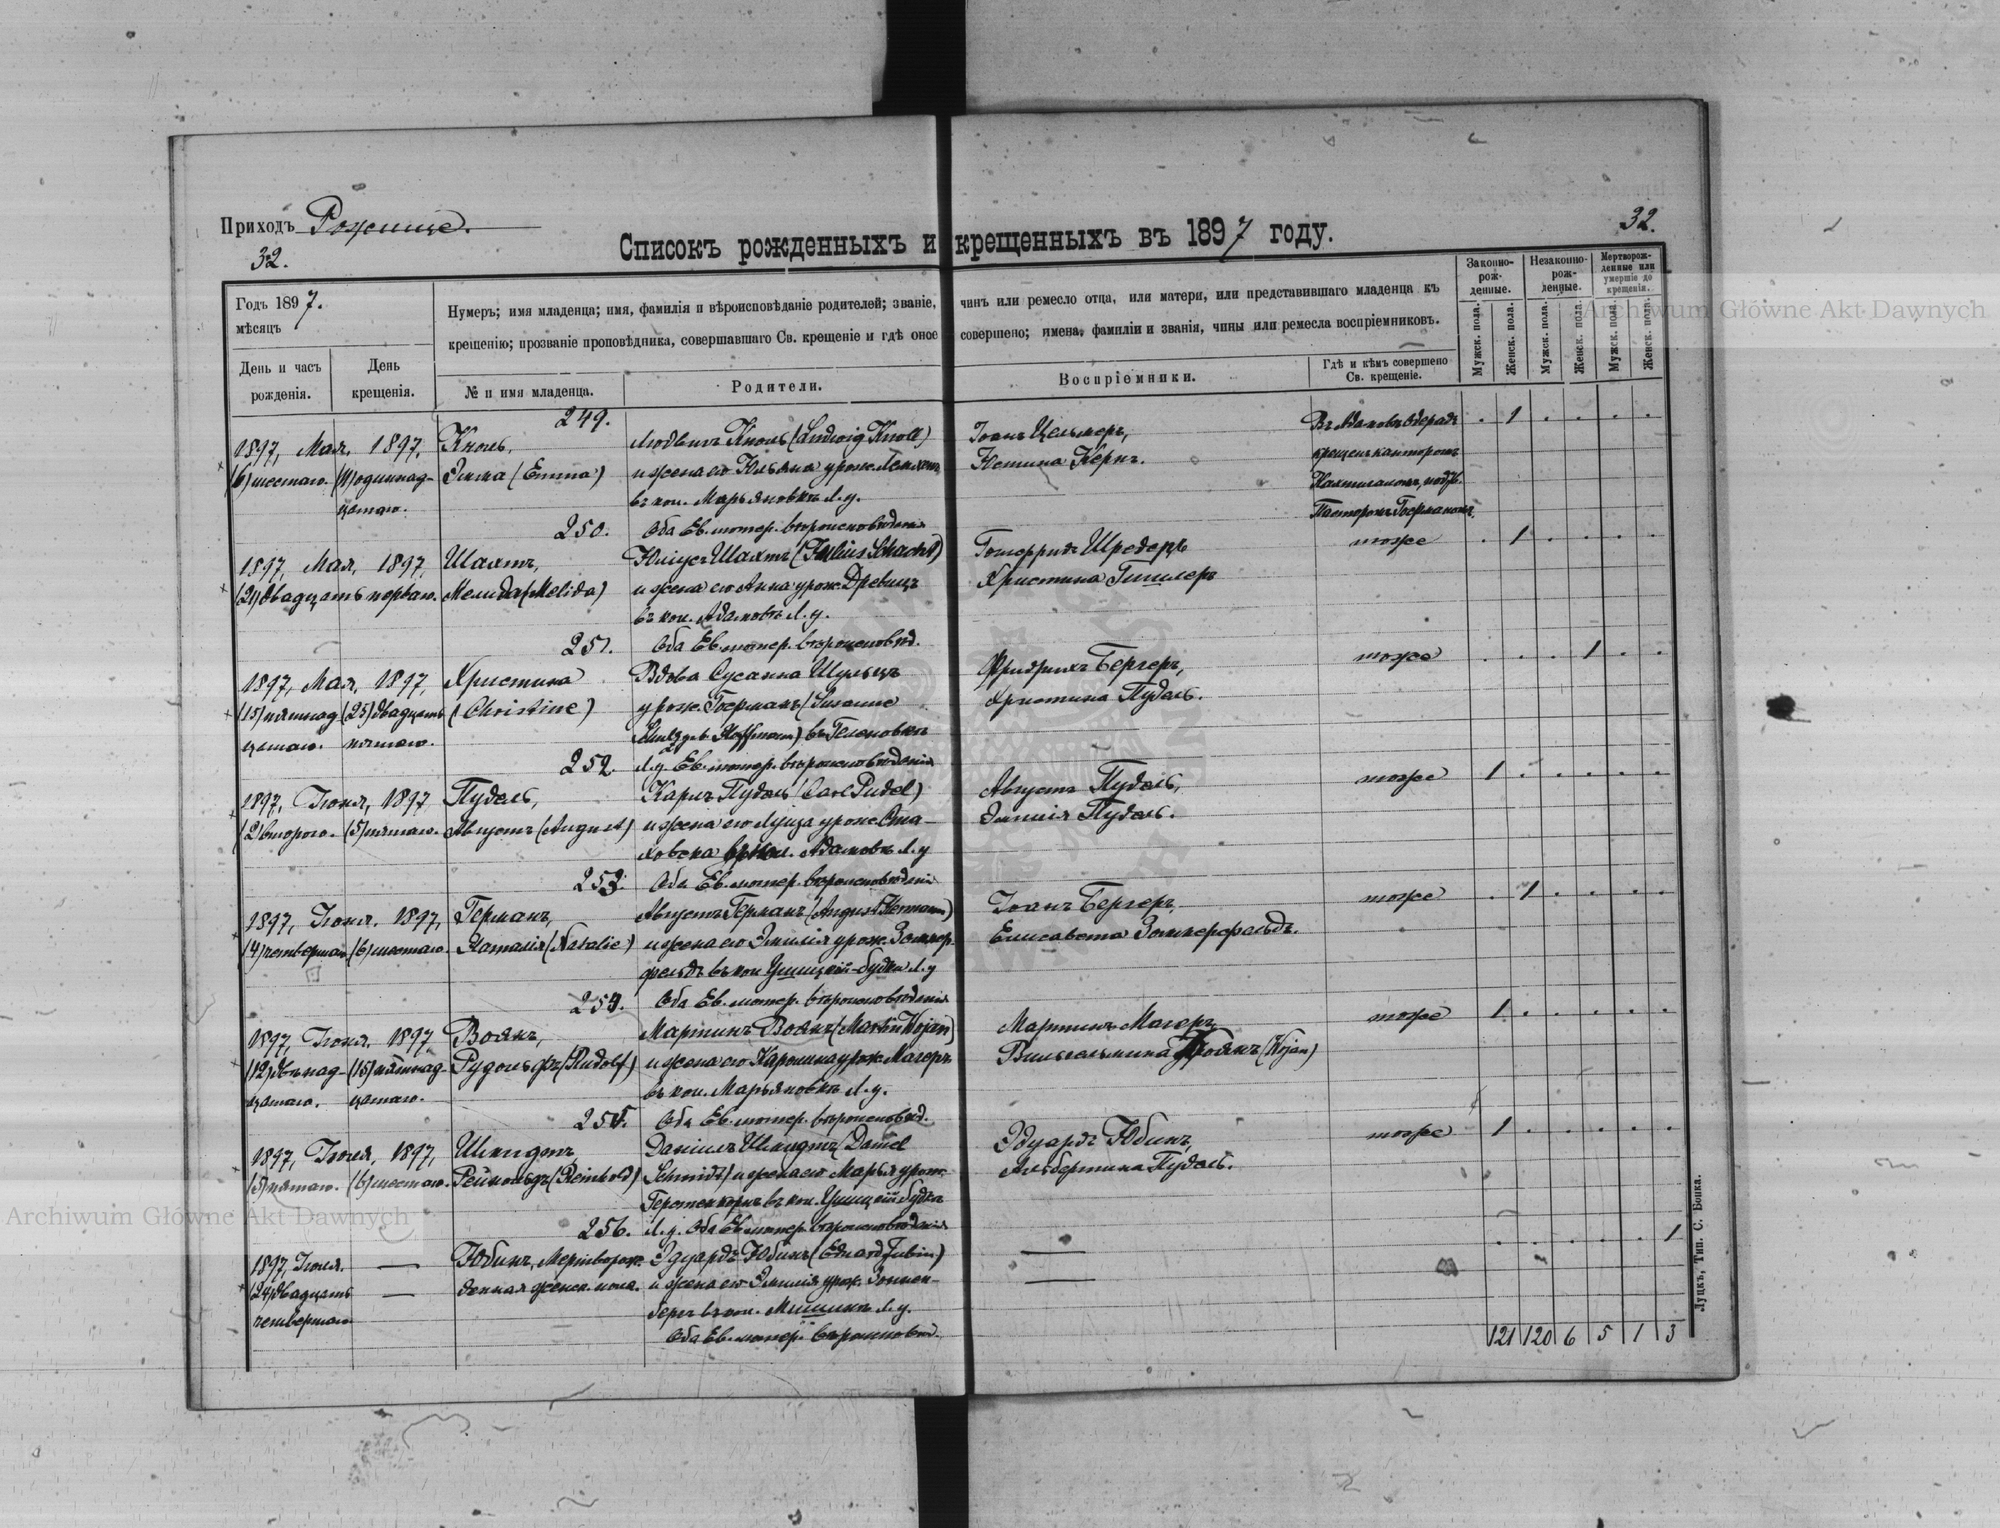 Приходъ Рожище.
32.
32.
Списокъ рожденныхъ и крещенныхъ въ 1897 году.
Годъ 1897.
мѣсяцъ
День и часъ рожденія.
День крещенія.
Нумеръ; имя младенца; имя, фамилія и вѣроисповѣданіе родителей; званіе, чинъ или ремесло отца, или матери, или представившаго младенца къ
крещенію; прозваніе проповѣдника, совершавшаго Св. крещеніе и гдѣ оное совершено; имена, фамиліи и званія, чины или ремесла воспріемниковъ.
№ и имя младенца.
Родители.
Воспріемники.
Гдѣ и кѣмъ совершено Св. крещеніе.
Законно-рож-денные.
Незаконно-рож-денные.
Мертворож-денные или умершіе до крещенія.
Мужск. пола.
Женск. пола.
Мужск. пола.
Женск. пола.
Мужск. пола.
Женск. пола.
249.
1897, Мая, 1897, Кноль, Людвигъ Кноль (Ludwig Knoll) Іоанъ Цельмеръ, . 1 . . . .
(6) шестаго. (11) одиннад- Эмма (Emma) и жена его Юльяна урож. Юстина Кернъ. крещенъ канторомъ
цатаго. въ кол. Марьяновкѣ Л. у.
Пасторомъ Госрманомъ.
250. Оба Ев. лютер. вѣроисповѣданія
1897, Мая, 1897, Шахтъ, Юліусъ Шахтъ (Julius Schacht) Готфридъ Шредеръ тоже . 1 . . . .
(21) двадцать перваго. Мелида (Melida) и жена его Анна урож. Древицъ Христина
въ кол. Адамовъ Л. у.
251. Оба Ев. лютер. вѣроисповѣд.
1897, Мая, 1897, Христина Вдова Сусанна Шульцъ Фридрихъ Бергеръ, тоже . . . 1 . .
(15) пятнад (25) двадцать (Christine) урож. Гофманъ (Susanne Христина Пудель.
цатаго. пятаго. Hoffmann) въ Геленовкѣ
252. Л. у. Ев. лютер. вѣроисповѣданія
1897, Іюня, 1897 Пудель, Карлъ Пудель (Carl Pudel) Августъ Пудель, тоже 1 . . . . .
(2) второго. (5) пятаго. Августъ (August) и жена его Луиза урож. Ста- Эмилія Пудель.
ховска въ кол. Адамовъ Л. у
253. Оба Ев. лютер. вѣроисповѣданія
1897, Іюня. 1897, Германъ, Августъ Германъ (August Hermann) Іоанъ Бергеръ, тоже . 1 . . . .
(4) четвертаго (6) шестаго. Наталія (Natalie) и жена его Эмилія урож. Зоммер- Елисавета Зоммерфельдъ.
фельдъ въ кол. Ушицкій-будки Л. у
254. Оба Ев. лютер. вѣроисповѣданія
1897, Іюня, 1897 Воянъ, Мартинъ Воянъ (Martin Wojan) Мартинъ Магеръ тоже 1 . . . . .
(12) двѣнад- (15) пятнад- Рудольфъ (Rudolf) и жена его Каролина урож. Магеръ Вильгельмина Воянъ (Wojan)
цатаго. цатаго. въ кол. Марьяновкѣ Л. у.
255. Оба Ев. лютер. вѣроисповѣд.
1897, Іюля, 1897, Шмидтъ, Даніилъ Шмидтъ (Daniel Эдуардъ Юбинъ, тоже 1 . . . . .
(5) пятаго. (6) шестаго. Рейнольдъ (Reinhold) Schmidt) и жена его Марья урож. Альбертина Пудель.
Герстенкорнъ въ кол. Ушицкій будки
256. Л. у. Оба Ев. лютер. вѣроисповѣданія
1897, Іюля. — Юбинъ, Мертворож- Эдуардъ Юбинъ (Eduard Jubin) — . . . . . 1
(24) двадцать — денная женск. пола. и жена его Эмилія урож. Зоннен- —
четвертаго бергъ въ кол. Л. у.
Оба Ев. лютер. вѣроисповѣд.
121 120 6 5 1 3
Луцкъ, Тип. С. Бонка.
Archiwum Główne Akt Dawnych
Archiwum Główne Akt Dawnych